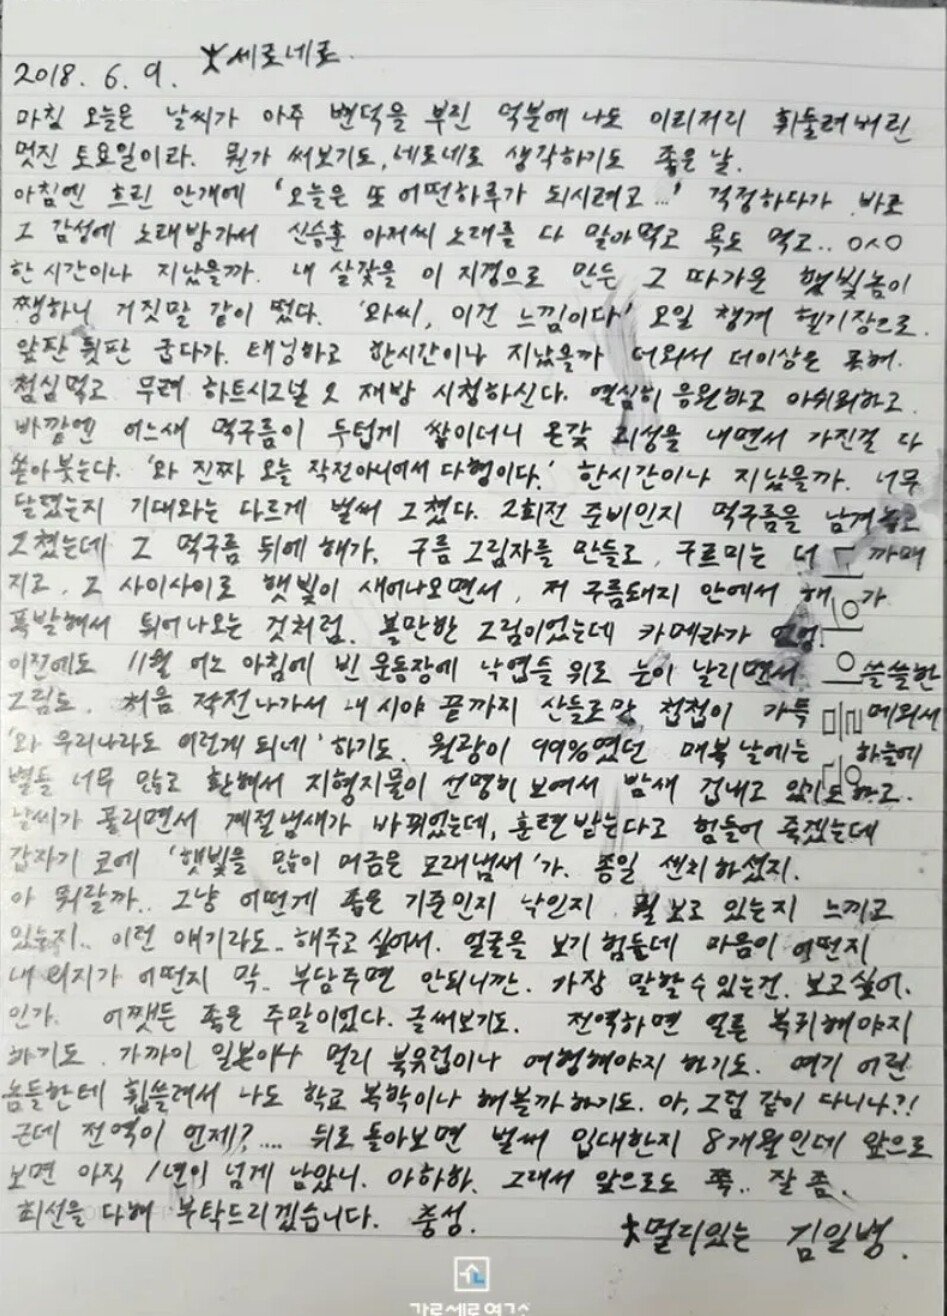 ★세로네로.
2018. 6. 9.
마침 오늘은 날씨가 아주 변덕을 부린 덕분에 나도 이리저리 휘둘려버린
멋진 토요일이라. 뭔가 써보기도, 네로네로 생각하기도 좋은 날.
아침엔 흐린 안개에 '오늘은 또 어떤하루가 되시려고...' 걱정하다가 바로
그 감성에 노래방가서 신승훈 아저씨 노래를 다 말아먹고 욕도 먹고.. ㅇㅅㅇ
한 시간이나 지났을까. 내 살갗을 이 지경으로 만든 그 따가운 햇빛놈이
쨍하니 거짓말 같이 떴다. '와씨, 이건 느낌이다' 오일 챙겨 헬기장으로.
앞판 뒷판 굽다가. 태닝하고 한시간이나 지났을까 더워서 더이상은 포해.
점심먹고 무려 하트시그널 2 재방 시청하신다. 열심히 응원하고 아쉬워하고.
바깥엔 어느새 먹구름이 두텁게 쌓이더니 온갖 괴성을 내면서 가진걸 다
쏟아붓는다. '와 진짜 오늘 작전아니여서 다행이다.' 한시간이나 지났을까. 너무
달랬는지 기대와는 다르게 벌써 그쳤다. 2회전 준비인지 먹구름을 남겨놓고
그쳤는데 그 먹구름 뒤에 해가, 구름 그림자를 만들고, 구르미는 더 까매
지고, 그 사이사이로 햇빛이 새어나오면서, 저 구름돼지 안에서 해가
폭발해서 튀어나오는 것처럼. 볼만한 그림이었는데 카메라가
이전에도 11월 어느 아침에 빈 운동장에 낙엽들 위로 눈이 날리면서 쓸쓸한
그림도. 처음 작전나가서 내 시야 끝까지 산들로만 첩첩이 가득 메워서
'와 우리나라도 이렇게 되네' 하기도. 월광이 99%였던 매복날에는 하늘에
별들 너무 많고 환해서 지형지물이 선명히 보여서 밤새 겁내고 있기도하고.
날씨가 풀리면서 계절냄새가 바뀌었는데, 훈련받는다고 힘들어 죽겠는데
갑자기 코에 '햇빛을 많이 머금은 모래냄새'가. 종일 센치하셨지.
아 뭐랄까.. 그냥 어떤게 좋은 기준인지 낙인지 뭘 보고 있는지 느끼고
있는지.. 이런 얘기라도.. 해주고 싶어서. 얼굴을 보기 힘들데 마음이 어떤지
내 의지가 어떤지 막.. 부담주면 안되니깐. 가장 말할수있는건. 보고싶어.
인가. 어쨋든 좋은 주말이었다. 글써보기도. 전역하면 얼른 복귀해야지
하기도. 가까이 일본이나 멀리 북유럽이나 여행해야지 하기도. 여기 어린
놈들한테 휩쓸려서 나도 학교 복학이나 해볼까하기도. 아, 그럼 같이 다니나?!
근데 전역이 언제?.... 뒤로 돌아보면 벌써 입대한지 8개월인데 앞으로
보면 아직 1년이 넘게 남았니. 아하하. 그래서 앞으로도 쭉.. 잘 좀.
최선을 다해 부탁드리겠습니다. 충성.
★멀리있는 김일병.
가로세로연구소